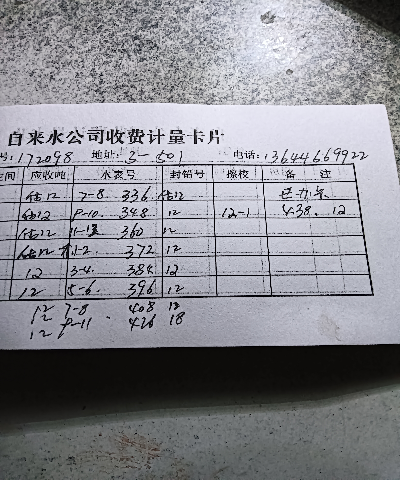 自来水公司收费计量卡片
号:172098 地址:3-501 电话:13644669922
间 应收吨 水表号 封铅号 换校 备注
估12 7-8 336 估12
估12 9-10 348 12 12-1 438. 12
估12 11-12 360 12
估12 1-2 372 12
12 3-4 384 12
12 5-6 396 12
12 7-8 408 12
12 9-11 426 18
12